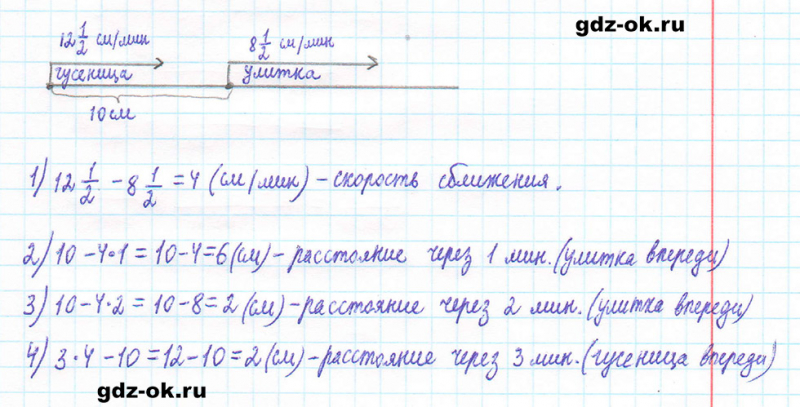 gdz-ok.ru
12 1/2 см/мин 8 1/2 см/мин
гусеница улитка
10 см
1) 12 1/2 - 8 1/2 = 4 (см/мин) - скорость сближения.
2) 10 - 4·1 = 10 - 4 = 6 (см) - расстояние через 1 мин. (улитка впереди)
3) 10 - 4·2 = 10 - 8 = 2 (см) - расстояние через 2 мин. (улитка впереди)
4) 3·4 - 10 = 12 - 10 = 2 (см) - расстояние через 3 мин. (гусеница впереди)
gdz-ok.ru